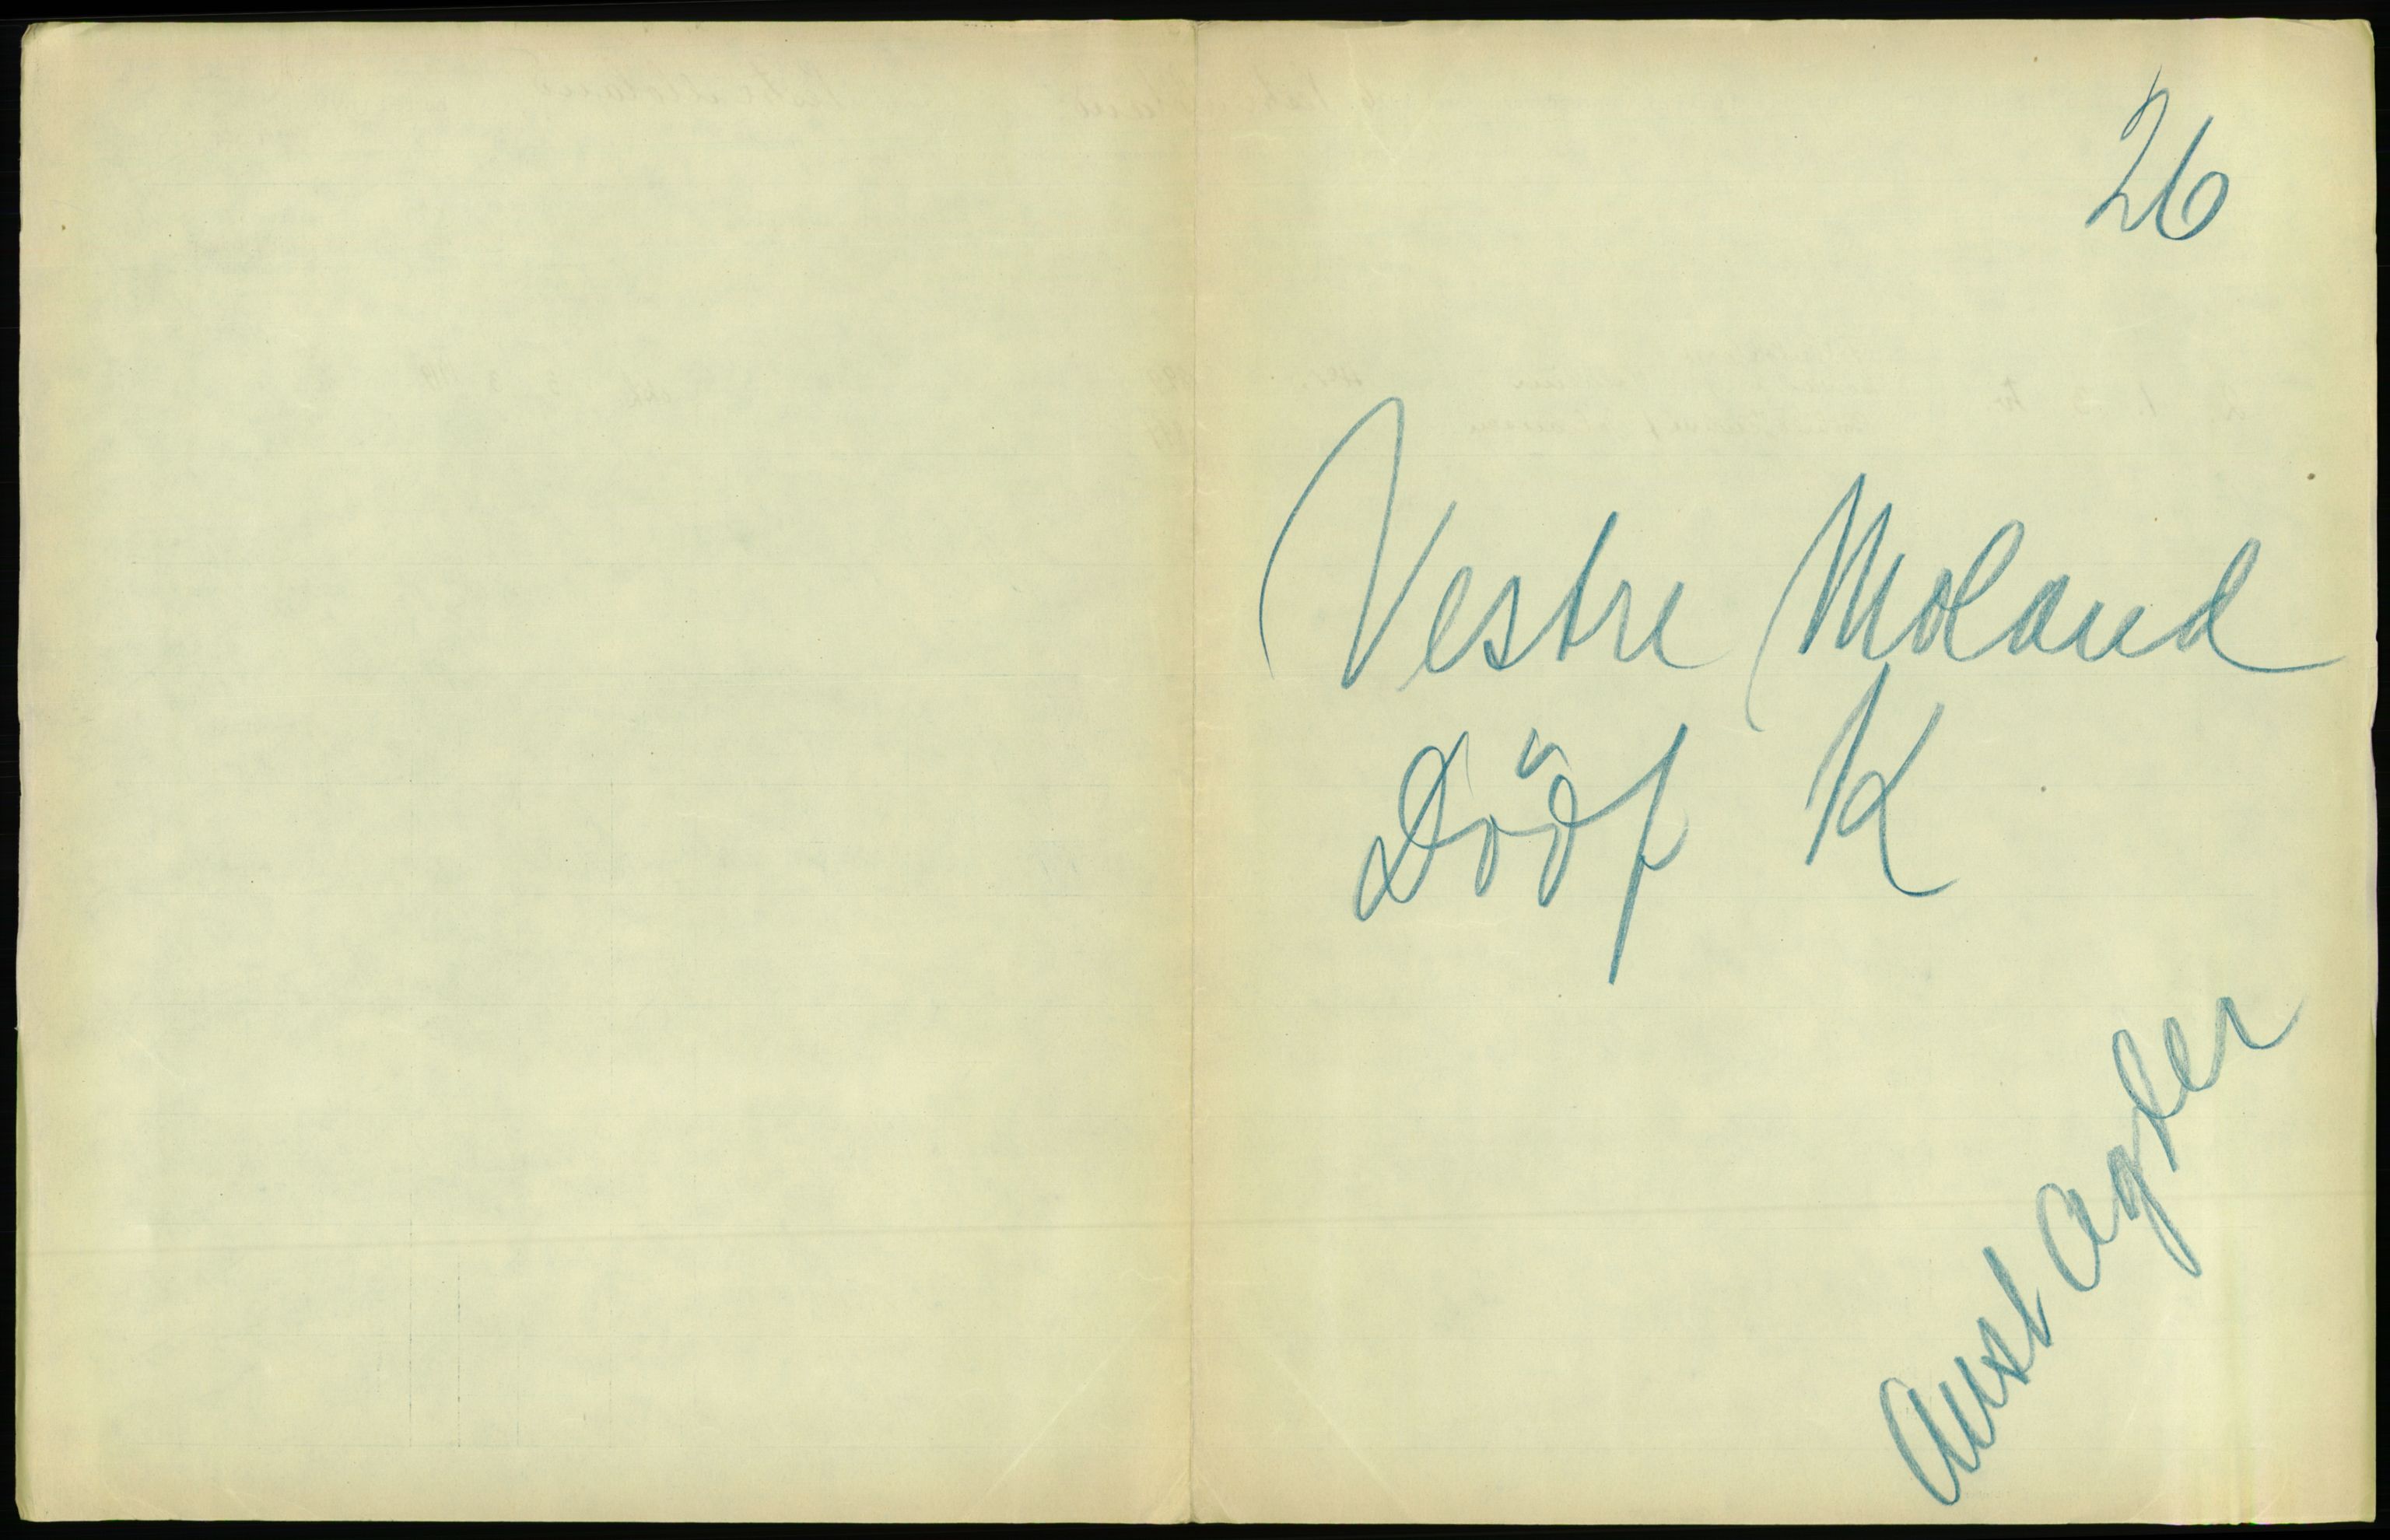 26
Vestre Moland
Dödf K
Aust Agder